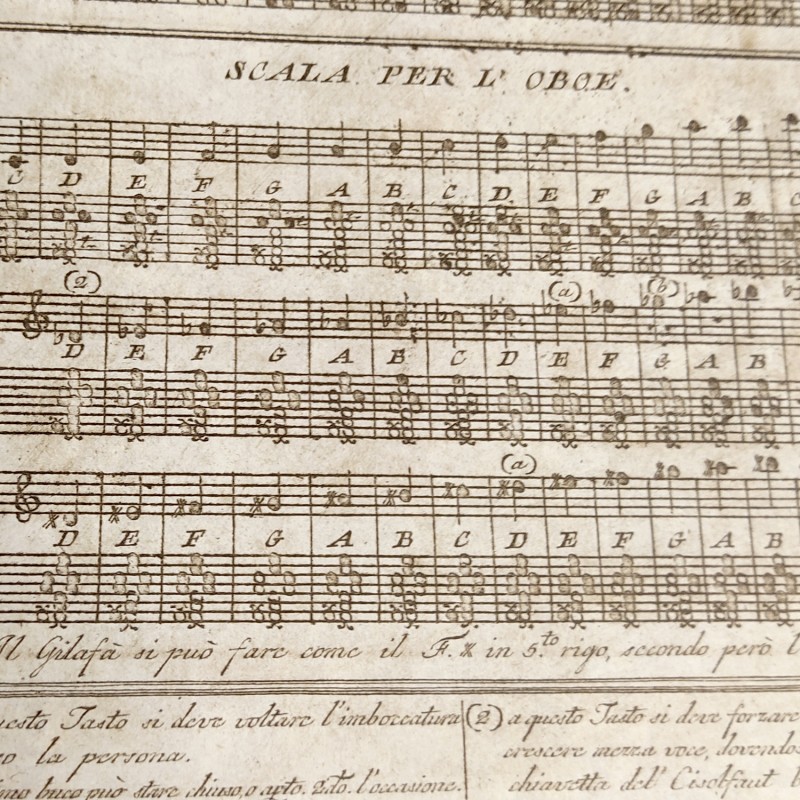 SCALA PER L' OBOE.
C D E F G A B C D E F G A B C
(2) (a) (b)
D E F G A B C D E F G A B
(a)
D E F G A B C D E F G A B
Il Gilafà si può fare come il F.# in 5.to rigo, secondo però l
uesto Tasto si deve voltare l'imboccatura
so la persona.
imo buco può stare chiuso, o apto. 2do. l'occasione.
(2) a questo Tasto si deve forzare
crescere mezza voce, dovendo
chiavetta del' Cisolfaut